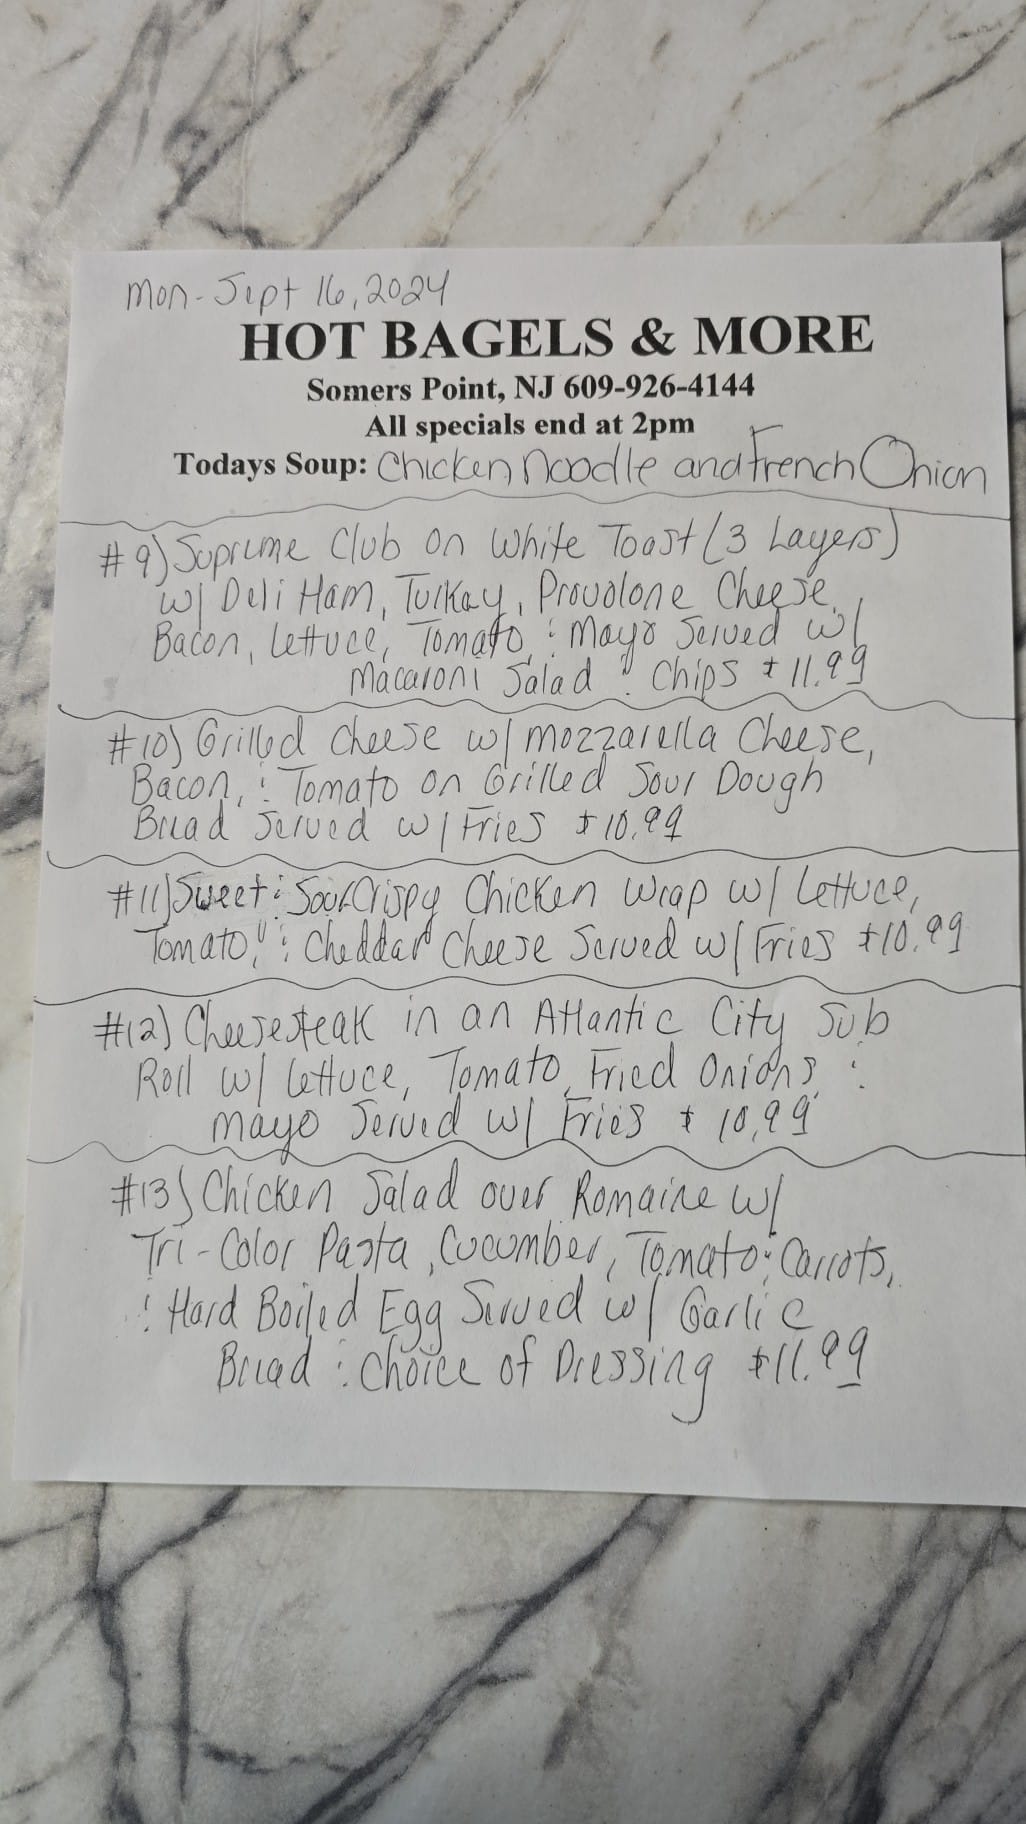 Mon- Sept 16, 2024
HOT BAGELS & MORE
Somers Point, NJ 609-926-4144
All specials end at 2pm
Todays Soup: Chicken Noodle and French Onion
#9) Supreme Club on White Toast (3 Layers)
w/ Deli Ham, Turkey, Provolone Cheese,
Bacon, Lettuce, Tomato, : Mayo Served w/
Macaroni Salad : Chips $11.99
#10) Grilled Cheese w/ Mozzarella Cheese,
Bacon, : Tomato on Grilled Sour Dough
Bread Served w/ Fries $10.99
#11) Sweet : Sour Crispy Chicken Wrap w/ Lettuce,
Tomato, : Cheddar Cheese Served w/ Fries $10.99
#12) Cheesesteak in an Atlantic City Sub
Roll w/ Lettuce, Tomato, Fried Onions, :
Mayo Served w/ Fries $10.99
#13) Chicken Salad over Romaine w/
Tri-Color Pasta, Cucumber, Tomato, Carrots,
: Hard Boiled Egg Served w/ Garlic
Bread : Choice of Dressing $11.99